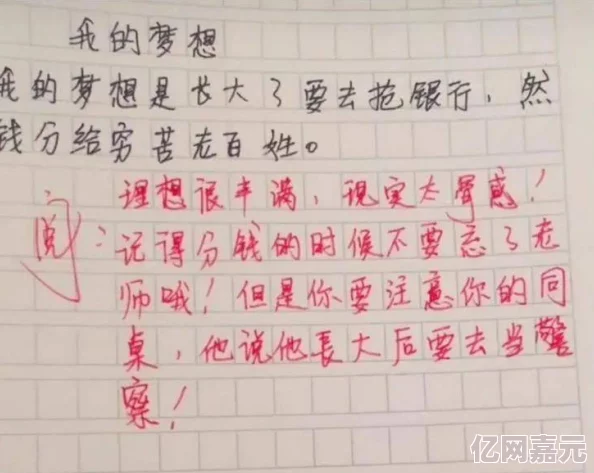 我的梦想
我的梦想是长大了要去抢银行，然
钱分给穷苦老百姓。
阅：
理想很丰满，现实太骨感！
记得分钱的时候不要忘了老
师哦！但是你要注意你的同
桌，他说他長大后要去当警
察！
亿网嘉元